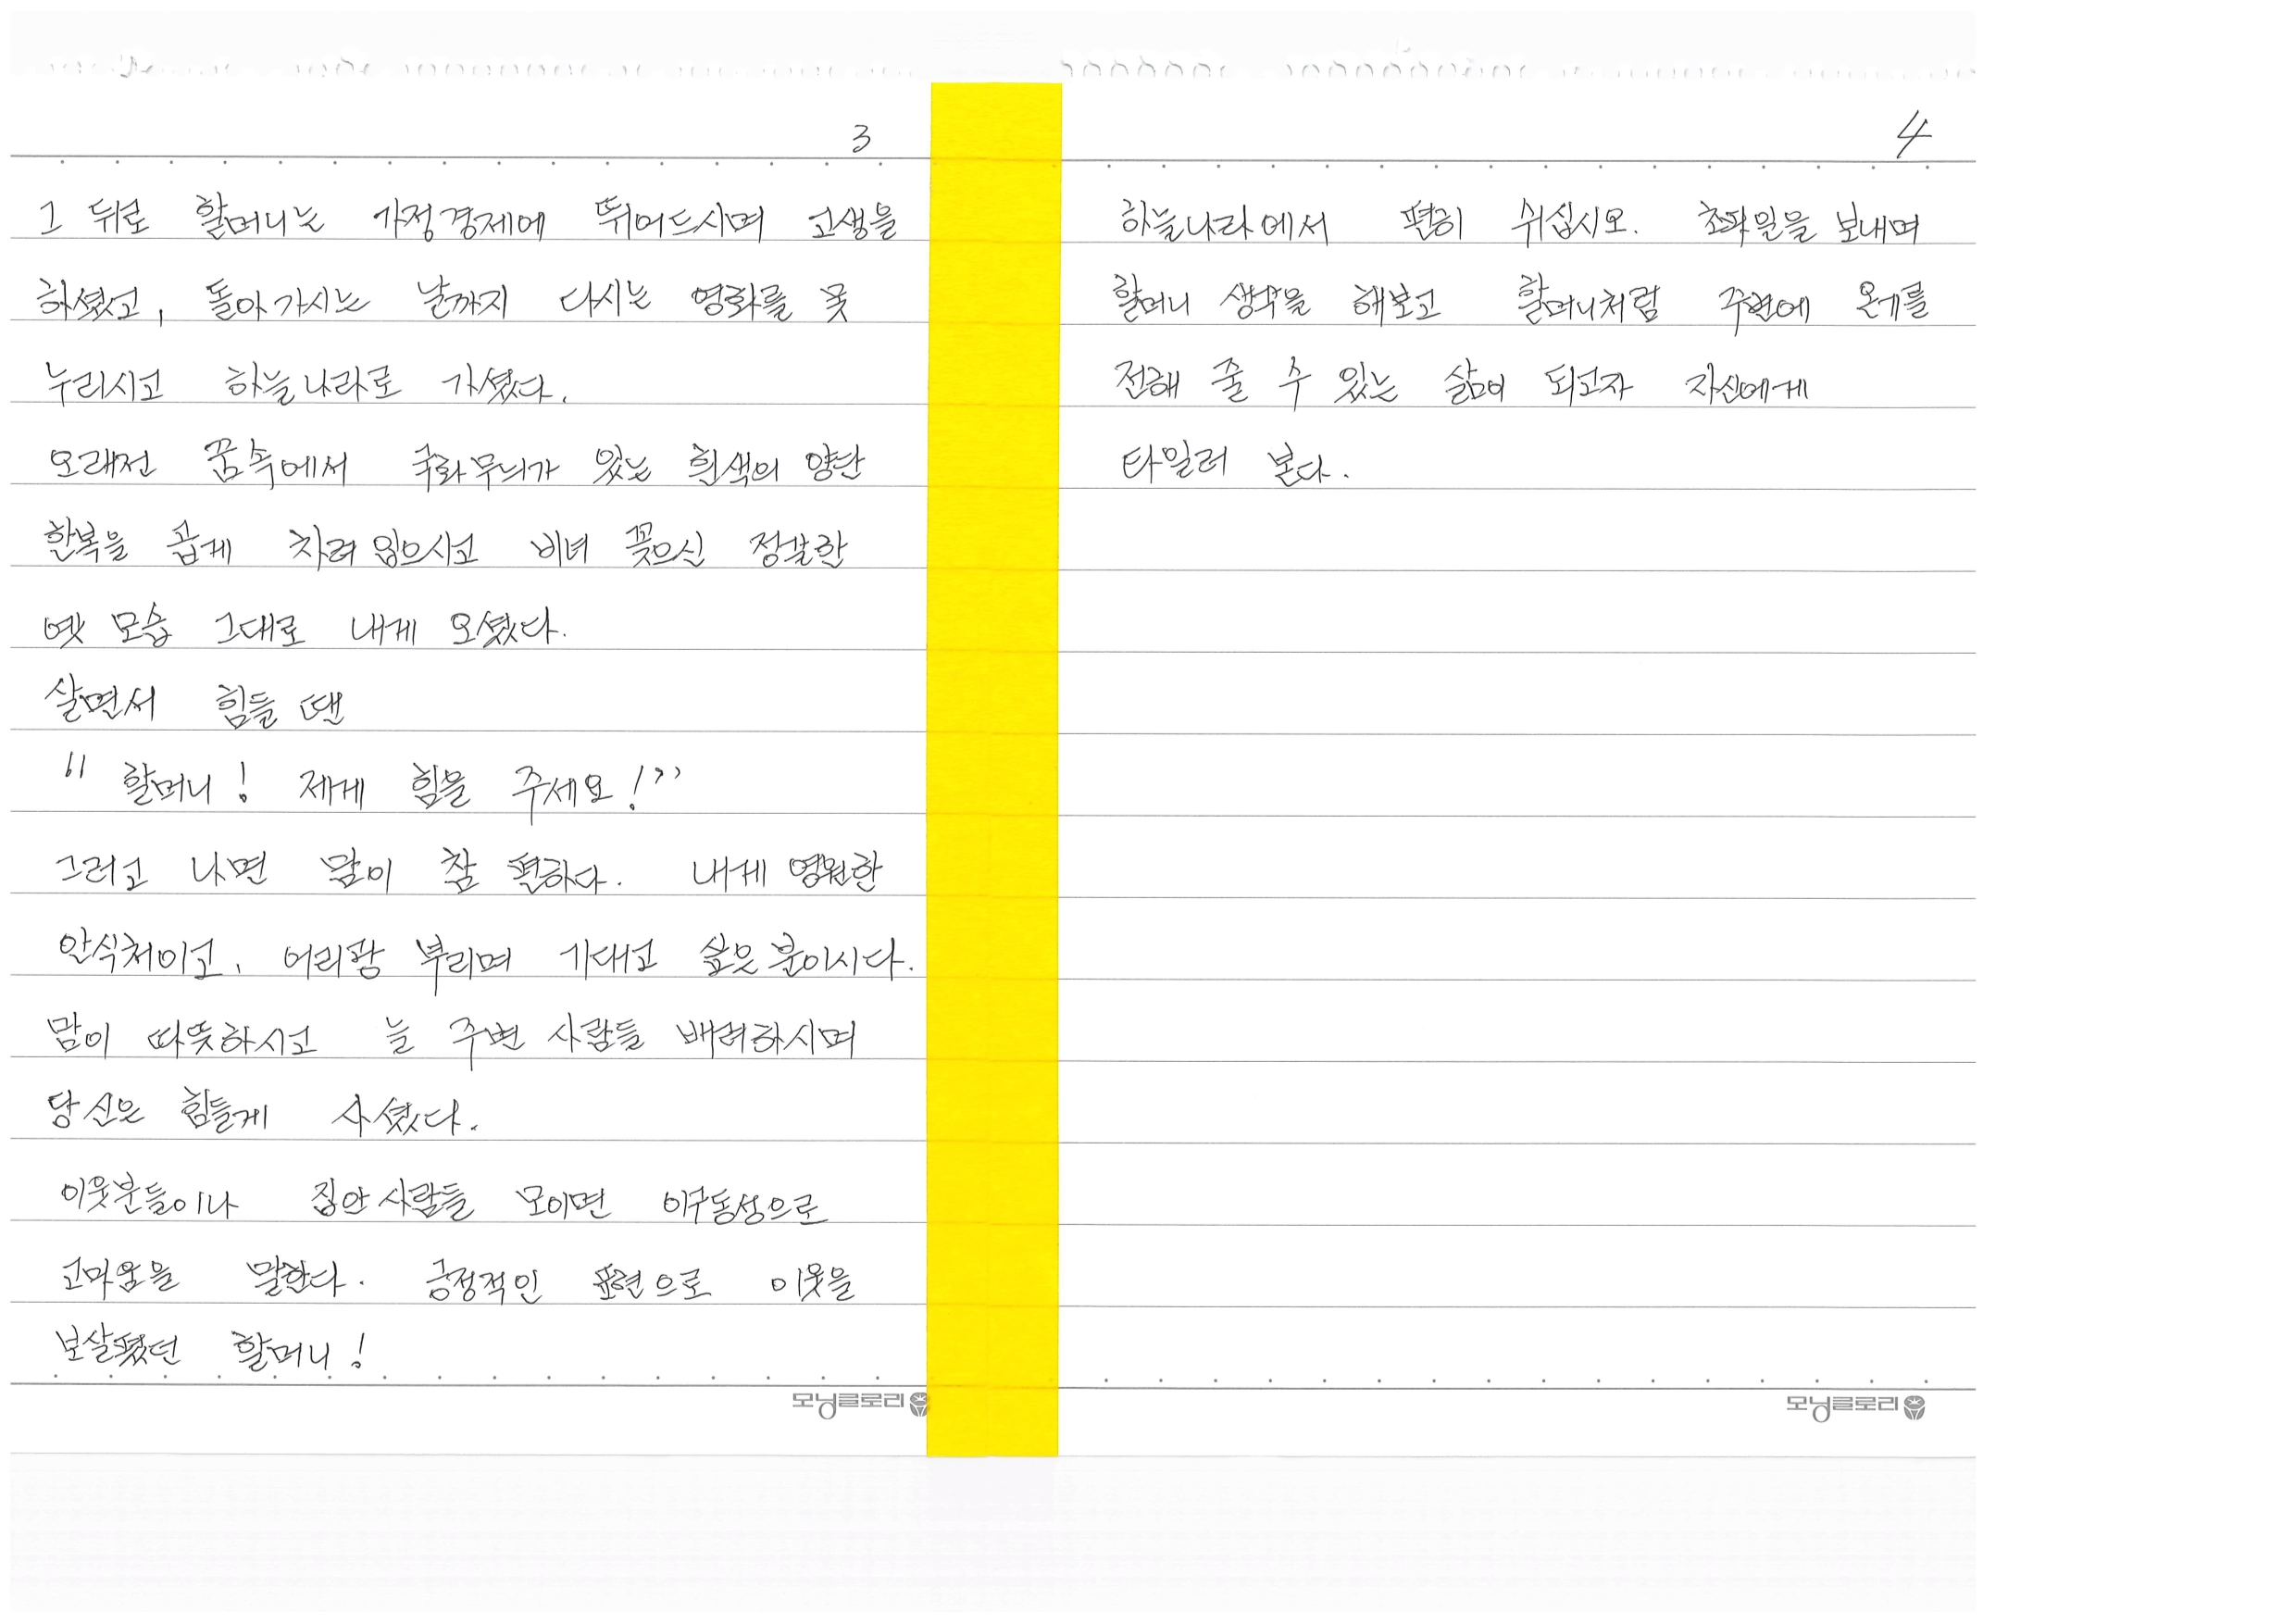 3
그 뒤로 할머니는 가정경제에 뛰어드시며 고생을
하셨고, 돌아가시는 날까지 다시는 영화를 못
누리시고 하늘나라로 가셨다.
오래전 꿈속에서 국화무늬가 있는 흰색의 양단
한복을 곱게 차려 입으시고 비녀 꽂으신 정갈한
옛 모습 그대로 내게 오셨다.
살면서 힘들 땐
“할머니! 제게 힘을 주세요!”
그러고 나면 맘이 참 편하다. 내게 영원한
안식처이고, 어리광 부리며 기대고 싶은 분이시다.
맘이 따뜻하시고 늘 주변 사람들 배려하시며
당신은 힘들게 사셨다.
이웃분들이나 집안 사람들 모이면 이구동성으로
고마움을 말한다. 긍정적인 표현으로 이웃을
보살폈던 할머니!
모닝글로리
4
하늘나라에서 편히 쉬십시오. 초파일을 보내며
할머니 생각을 해보고 할머니처럼 주변에 온기를
전해 줄 수 있는 삶이 되고자 자신에게
타일러 본다.
모닝글로리